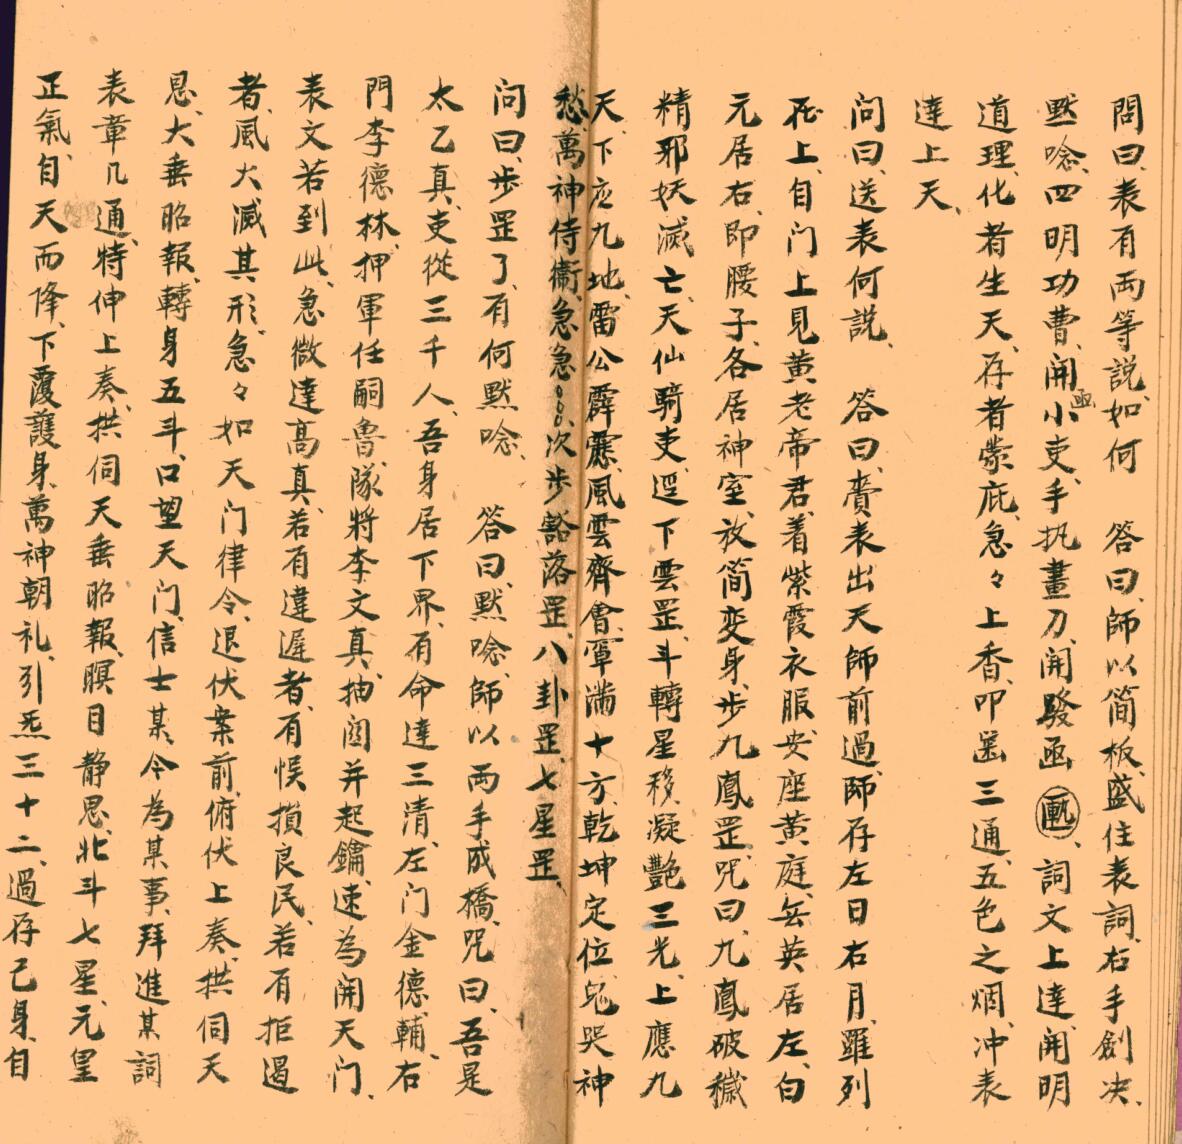 問曰、表有兩等說、如何　答曰、師以简板、盛住表詞、右手劍决、
默唸、四明功曹、開函小吏、手执畫刀、開發函　詞文上達、開明
道理、化者生天、存者蒙庇、急々上香、叩齒三通、五色之烟、冲表
達上天、
問曰、送表何説、　答曰、賫表出天師前過、師存左日右月、羅列
在上、自门上見黄老帝君、着紫霞衣服、安座黄庭、無英居左、白
元居右、即腰子、各居神室、放简变身、步九鳳罡、咒曰、九鳳破穢
精邪妖滅亡、天仙騎吏、逕下雲罡、斗轉星移、凝艷三光、上應九
天、下应九地、雷公霹靂、風雲齊會、罩滿十方、乾坤定位、鬼哭神
愁、萬神侍衞、急急〻〻、次步豁落罡、八卦罡、七星罡、
問曰、步罡了、有何默唸、　答曰、默唸、師以兩手成橋、咒曰、吾是
太乙真、吏從三千人、吾身居下界、有命達三清、左门金德輔、右
門李德林、押軍任嗣魯、隊將李文真、抽関并起鑰、速為開天门、
表文若到此、急微達髙真、若有違遲者、有悮損良民、若有拒遏
者、風火滅其形、急々如天门律令、退伏案前、俯伏上奏、拱伺天
恩、大垂昭報、轉身五斗、口望天门、信士某、今為某事、拜進某詞
表章几通、特伸上奏、拱伺天垂昭報、瞑目静思、北斗七星、元皇
正氣、自天而降、下覆護身、萬神朝礼、引炁三十二、過存己身、自